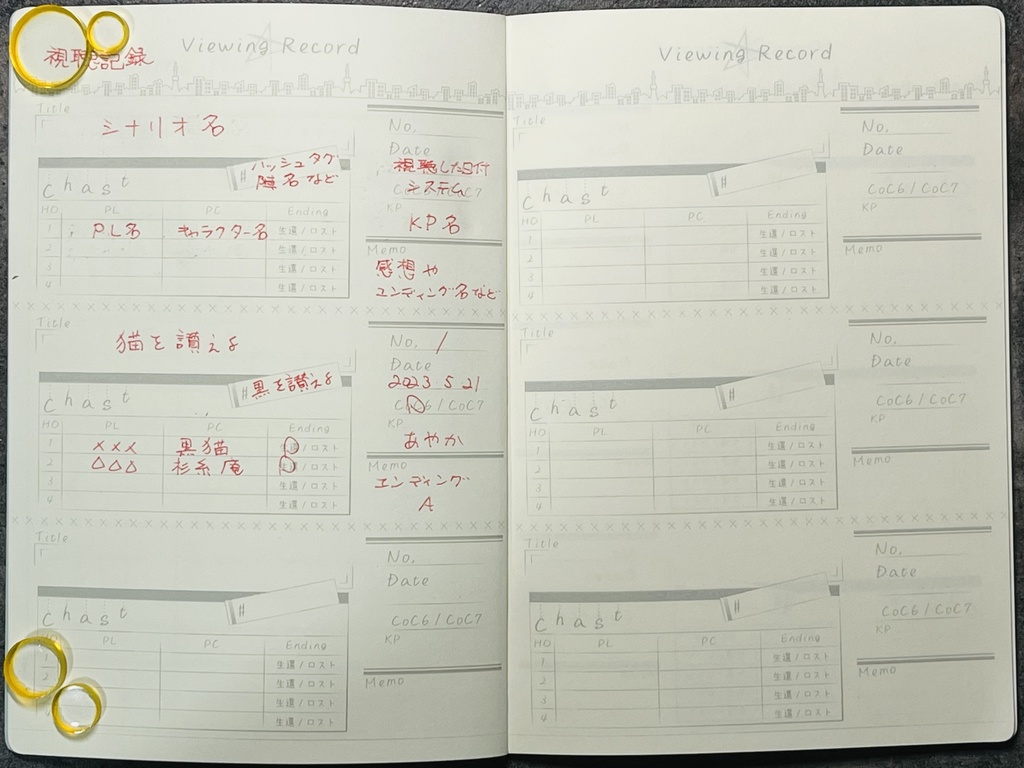 Viewing Record
視聴記録
Title
シナリオ名
No.
Date
視聴した日付
#ハッシュタグ
陣名など
Chast
CoC6 / CoC7
システム
KP
KP名
HO PL PC Ending
1 PL名 キャラクター名 生還 / ロスト
2 生還 / ロスト
3 生還 / ロスト
4 生還 / ロスト
Memo
感想や
エンディング名など
Title
猫を讃えよ
No. 1
Date
2023 5 21
#黒を讃えよ
Chast
CoC6 / CoC7
KP
あやか
HO PL PC Ending
1 ××× 黒猫 生還 / ロスト
2 △△△ 杉糸庵 生還 / ロスト
3 生還 / ロスト
4 生還 / ロスト
Memo
エンディング
A
Title
No.
Date
#
Chast
CoC6 / CoC7
KP
HO PL PC Ending
1 生還 / ロスト
2 生還 / ロスト
生還 / ロスト
生還 / ロスト
Memo
Viewing Record
Title
No.
Date
#
Chast
CoC6 / CoC7
KP
HO PL PC Ending
1 生還 / ロスト
2 生還 / ロスト
3 生還 / ロスト
4 生還 / ロスト
Memo
Title
No.
Date
#
Chast
CoC6 / CoC7
KP
HO PL PC Ending
1 生還 / ロスト
2 生還 / ロスト
3 生還 / ロスト
4 生還 / ロスト
Memo
Title
No.
Date
#
Chast
CoC6 / CoC7
KP
HO PL PC Ending
1 生還 / ロスト
2 生還 / ロスト
3 生還 / ロスト
4 生還 / ロスト
Memo